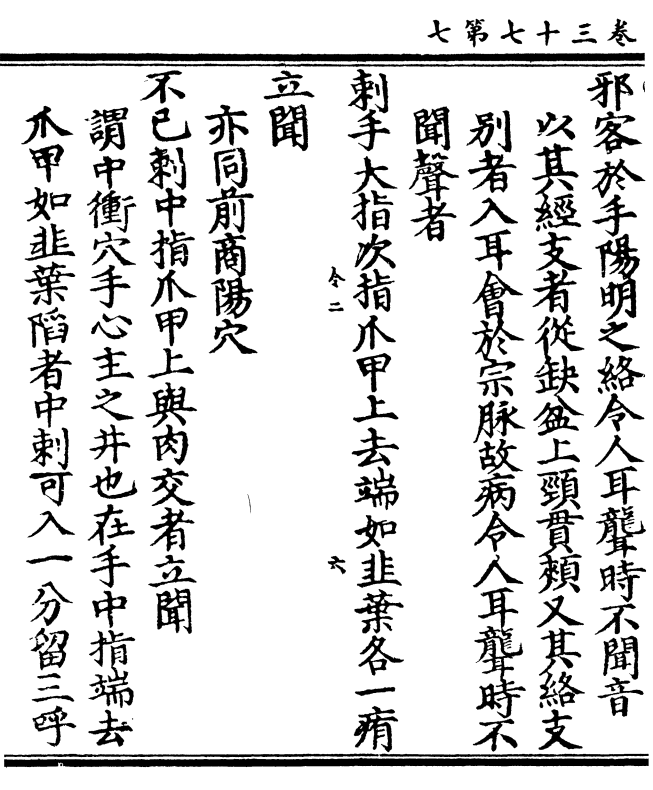 卷三十七第七
邪客於手陽明之絡令人耳聾時不聞音
以其經支者從缺盆上頸貫頰又其絡支
别者入耳會於宗脉故病令人耳聾時不
聞聲者
刺手大指次指爪甲上去端如韭葉各一痏
令二
六
立聞
亦同前商陽穴
不已刺中指爪甲上與肉交者立聞
謂中衝穴手心主之井也在手中指端去
爪甲如韭葉陷者中刺可入一分留三呼